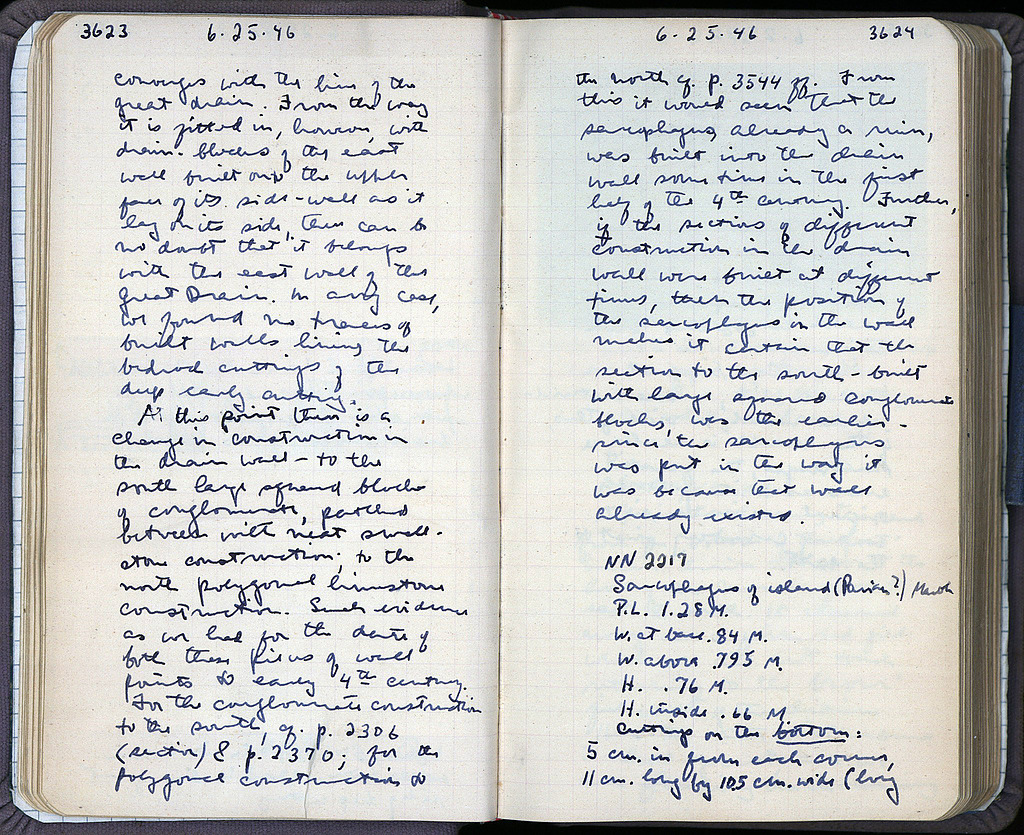 3623 6-25-46
converges with the line of the
great drain. From the way
it is fitted in, however, with
drain-blocks of the east
wall built onto the upper
face of its side-wall as it
lay on its side, there can be
no doubt that it belongs
with the east wall of the
great Drain. In any case,
we found no traces of
built walls lining the
bedrock cuttings of the
deep early cutting.
At this point there is a
change in construction in
the drain wall – to the
south large squared blocks
of conglomerate, patched
between with neat small-
stone construction; to the
north polygonal limestone
construction. Such evidence
as we had for the date of
both these pieces of wall
points to early 4th century.
For the conglomerate construction
to the south, cf. p. 2306
(section) & p. 2370; for the
polygonal construction to
6-25-46 3624
the north cf. p. 3544 ff. From
this it would seem that the
sarcophagus, already a ruin,
was built into the drain
wall some time in the first
half of the 4th century. Further,
if the sections of different
construction in the drain
wall were built at different
times, then the position of
the sarcophagus in the wall
makes it certain that the
section to the south – built
with large squared conglomerate
blocks, was the earlier –
since the sarcophagus
was put in the way it
was because that wall
already existed.
NN 2217
Sarcophagus of island (Parian?) Marble
P.L. 1.28 M.
W. at base .84 M.
W. above .795 M.
H. .76 M.
H. inside .66 M
Cuttings on the bottom:
5 cm. in from each corner,
11 cm. long by 10.5 cm. wide (long